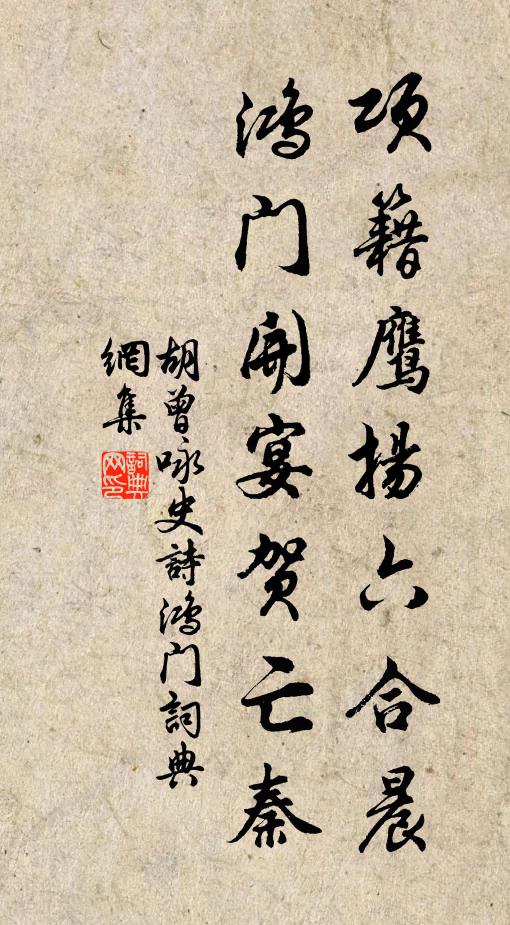 项籍鹰扬六合晨
鸿门开宴贺亡秦
胡曾咏史詩鸿门詞典
網集
詞典
网印